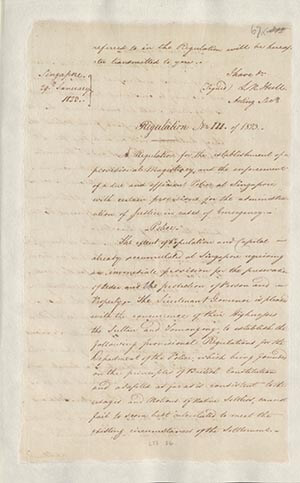 67
referred to in the Regulation will be hereaf-
ter transmitted to you.
Singapore
29 January
1823.
I have &c
Signed L N Hull
Acting Secy
Regulation No III of 1823.
A Regulation for the establishment of a
provisional Magistracy and the enforcement
of a due and efficient Police at Singapore
with certain provisions for the administra-
tion of Justice in cases of Emergency.
Police
The extent of Population and Capital
already accumulated at Singapore requiring
an immediate provision for the preservation
of Order and the protection of Person and
Property. The Lieutenant Governor is pleased
with the concurrence of their Highnesses
the Sultan and Tumungong to establish the
following provisional Regulations for the
Department of the Police, which being founded
on the principles of British Constitution
and adapted as far as is consistent to the
usages and Notions of Native Settlers, cannot
fail to seem best calculated to meet the
existing circumstances of the Settlement.